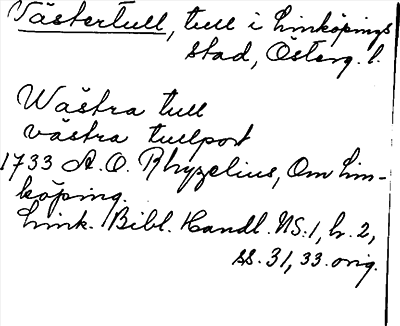 Västertull, tull i Linköpings
stad, Österg. l.
Wästra tull
västra tullport
1733 A. O. Rhyzelius, Om Lin-
köping.
Link. Bibl. Handl. NS:1, h. 2,
ss. 31, 33. orig.